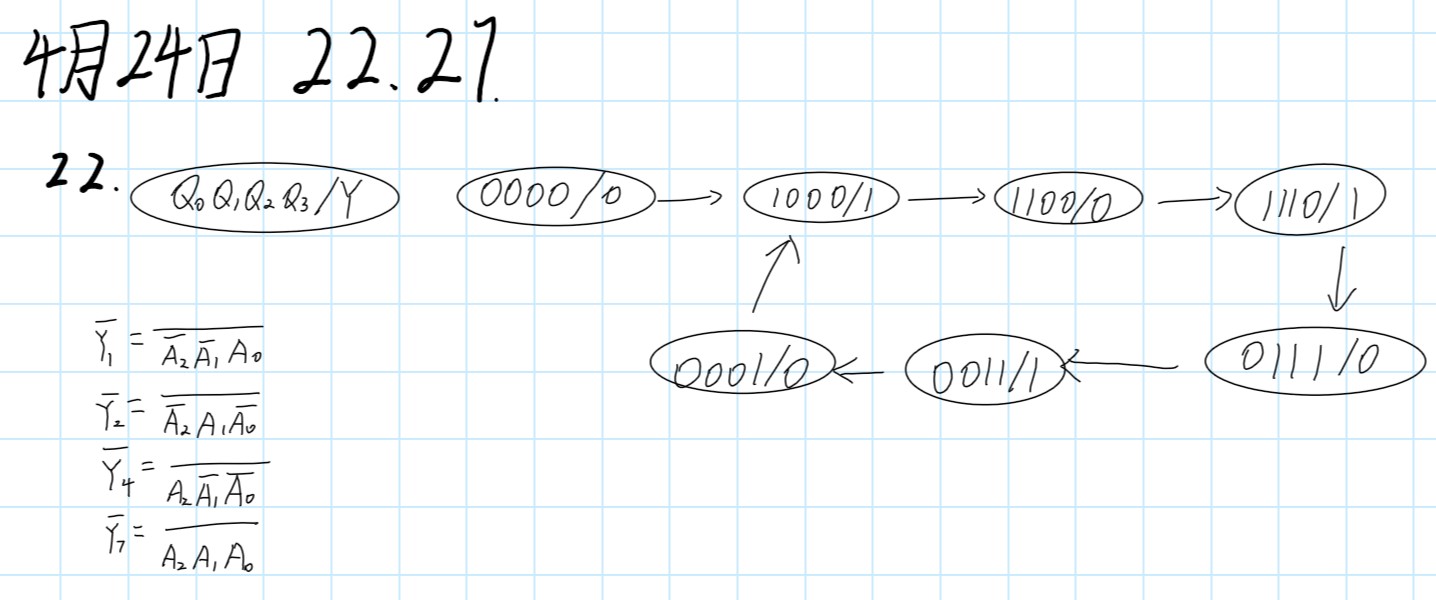 4月24日 22.27.
22. Q₀Q₁Q₂Q₃/Y 0000/0 → 1000/1 → 1100/0 → 1110/1
0001/0 ← 0011/1 ← 0111/0
Y̅₁ = \overline{A̅₂ A̅₁ A₀}
Y̅₂ = \overline{A̅₂ A₁ A̅₀}
Y̅₄ = \overline{A₂ A̅₁ A̅₀}
Y̅₇ = \overline{A₂ A₁ A₀}